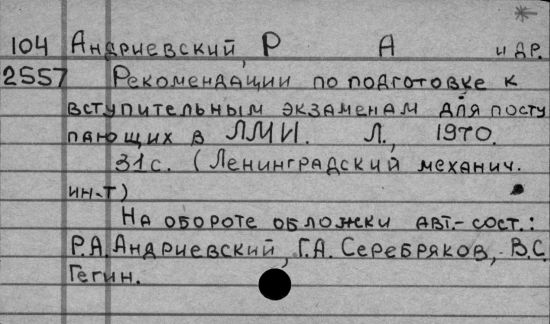 104 Андриевский, Р А и др.
2557 Рекомендации по подготовке к
вступительным экзаменам для посту
пающих в ЛМИ. Л., 1970.
31с. (Ленинградский механич.
ин-т)
На обороте обложки авт.-сост.:
Р.А. Андриевский, Г.А. Серебряков, В.С.
Гегин.